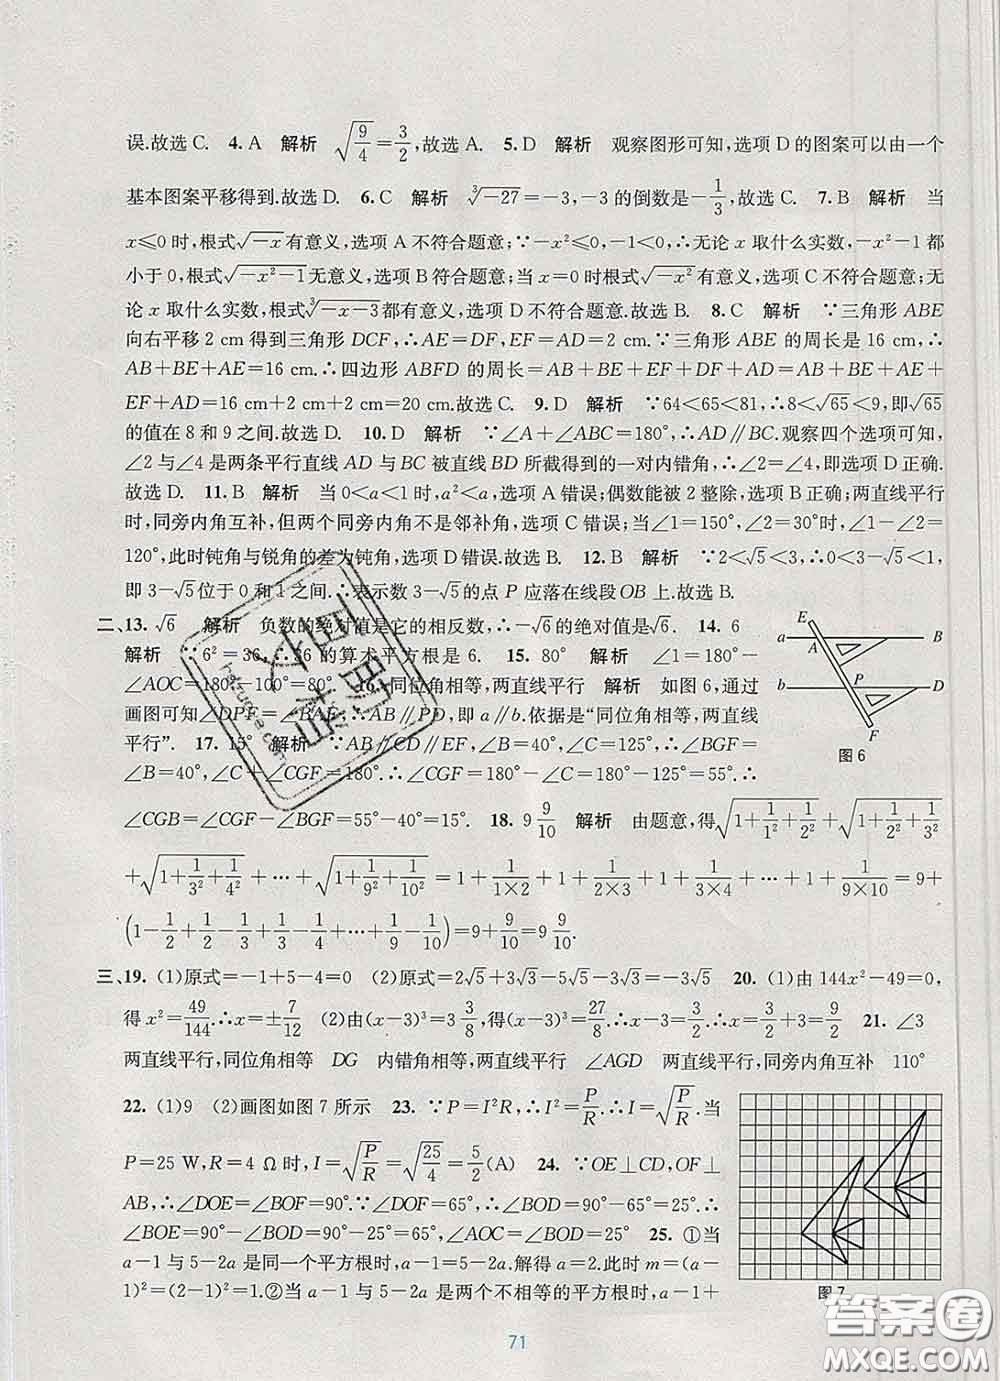 误.故选 C. 4. A 解析 √(9/4)=3/2,故选 A. 5. D 解析 观察图形可知,选项 D 的图案可以由一个
基本图案平移得到.故选 D. 6. C 解析 ³√-27=-3,-3 的倒数是-1/3,故选 C. 7. B 解析 当
x≤0 时,根式√-x有意义,选项 A 不符合题意;∵-x²≤0,-1<0,∴无论 x 取什么实数,-x²-1 都
小于 0,根式√(-x²-1)无意义,选项 B 符合题意;当 x=0 时根式√(-x²)有意义,选项 C 不符合题意;无
论 x 取什么实数,根式³√(-x-3)都有意义,选项 D 不符合题意.故选 B. 8. C 解析 ∵三角形 ABE
向右平移 2 cm 得到三角形 DCF,∴AE=DF,EF=AD=2 cm.∵三角形 ABE 的周长是 16 cm,∴
AB+BE+AE=16 cm.∴四边形 ABFD 的周长=AB+BE+EF+DF+AD=AB+BE+AE+
EF+AD=16 cm+2 cm+2 cm=20 cm.故选 C. 9. D 解析 ∵64<65<81,∴8<√65<9,即√65
的值在 8 和 9 之间.故选 D. 10. D 解析 ∵∠A+∠ABC=180°,∴AD∥BC.观察四个选项可知,
∠2 与∠4 是两条平行直线 AD 与 BC 被直线 BD 所截得到的一对内错角,∴∠2=∠4,即选项 D 正确.
故选 D. 11. B 解析 当 0<a<1 时,a²<a,选项 A 错误;偶数能被 2 整除,选项 B 正确;两直线平行
时,同旁内角互补,但两个同旁内角不是邻补角,选项 C 错误;当∠1=150°,∠2=30°时,∠1-∠2=
120°,此时钝角与锐角的差为钝角,选项 D 错误.故选 B. 12. B 解析 ∵2<√5<3,∴0<3-√5<1,
即 3-√5位于 0 和 1 之间.∴表示数 3-√5的点 P 应落在线段 OB 上.故选 B.
二、13. √6 解析 负数的绝对值是它的相反数,∴-√6的绝对值是√6. 14. 6
解析 ∵6²=36,∴36 的算术平方根是 6. 15. 80° 解析 ∠1=180°-
∠AOC=180°-100°=80° 16. 同位角相等,两直线平行 解析 如图 6,通过
画图可知∠DPF=∠BAF,∴AB∥PD,即 a∥b.依据是“同位角相等,两直线
平行”. 17. 15° 解析 ∵AB∥CD∥EF,∠B=40°,∠C=125°,∴∠BGF=
∠B=40°,∠C+∠CGF=180°.∴∠CGF=180°-∠C=180°-125°=55°.∴
∠CGB=∠CGF-∠BGF=55°-40°=15°. 18. 9 9/10 解析 由题意,得√(1+1/1²+1/2²)+√(1+1/2²+1/3²)
+√(1+1/3²+1/4²)+…+√(1+1/9²+1/10²)=1+1/(1×2)+1+1/(2×3)+1+1/(3×4)+…+1+1/(9×10)=9+
(1-1/2+1/2-1/3+1/3-1/4+…+1/9-1/10)=9+9/10=9 9/10.
E
A
B
a
b
P
D
F
图 6
三、19. (1)原式=-1+5-4=0 (2)原式=2√5+3√3-5√5-3√3=-3√5 20. (1)由 144x²-49=0,
得 x²=49/144.∴x=±7/12 (2)由(x-3)³=3 3/8,得(x-3)³=27/8.∴x-3=3/2.∴x=3/2+3=9/2 21. ∠3
两直线平行,同位角相等 DG 内错角相等,两直线平行 ∠AGD 两直线平行,同旁内角互补 110°
22. (1)9 (2)画图如图 7 所示 23. ∵P=I²R,∴I²=P/R.∴I=√(P/R).当
P=25 W,R=4 Ω 时,I=√(P/R)=√(25/4)=5/2(A) 24. ∵OE⊥CD,OF⊥
AB,∴∠DOE=∠BOF=90°.∵∠DOF=65°,∴∠BOD=90°-65°=25°.∴
∠BOE=90°-∠BOD=90°-25°=65°,∠AOC=∠BOD=25° 25. ①当
a-1 与 5-2a 是同一个平方根时,a-1=5-2a.解得 a=2.此时 m=(a-
1)²=(2-1)²=1.②当 a-1 与 5-2a 是两个不相等的平方根时,a-1+
图 7
71
答案圈
MXQE.COM